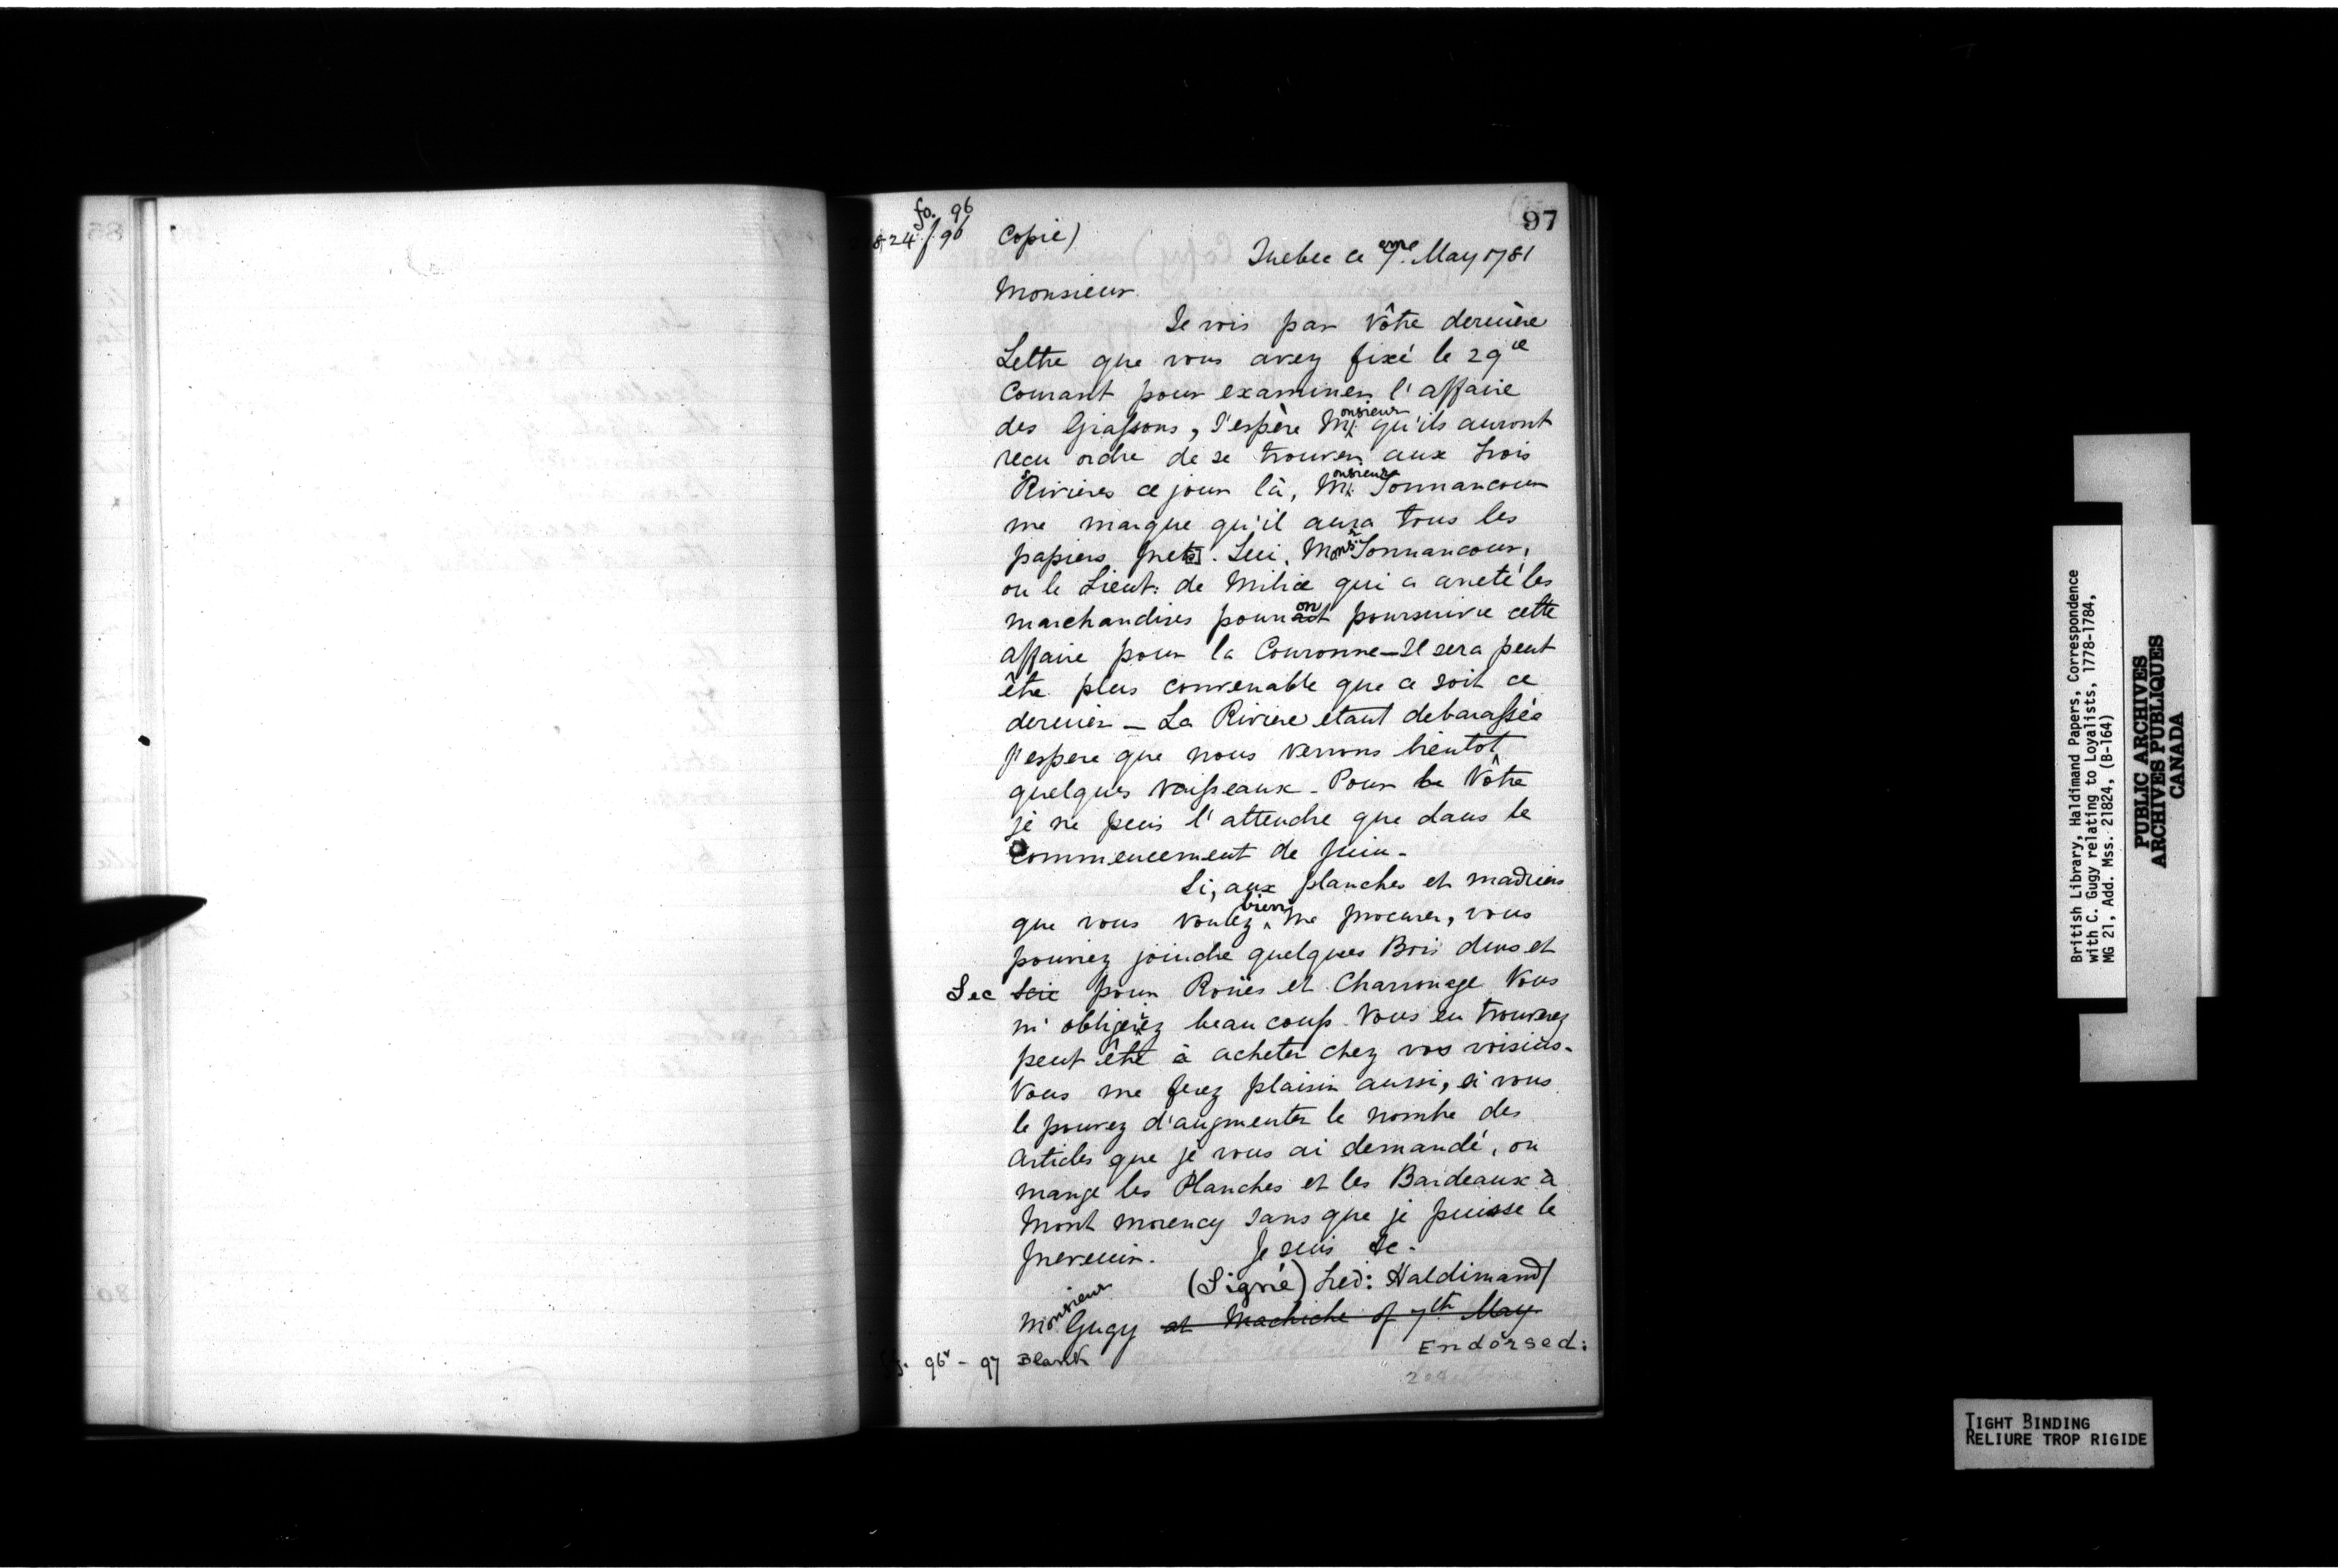 97
fo. 96
824 f. 96
Copie)
Quebec ce 7.eme May 1781
Monsieur
Je vois par Vôtre dernière
Lettre que vous avez fixé le 29ce
Courant pour examiner l'affaire
des Grassons, J'espère Monsieur qu'ils auront
reçu ordre de se trouver aux trois
Rivieres ce jour là, Monsieur Tonnancour
me marque qu'il aura tous les
papiers prets. Lui, Monsr Tonnancour,
ou le Lieut: de Milice qui a arreté les
marchandises pourront poursuivre cette
affaire pour la Couronne—Il sera peut
être plus convenable que ce soit ce
dernier — La Riviere etant debarassée
j'espere que nous verrons bientot
quelques vaisseaux - Pour le Vôtre
je ne puis l'attendre que dans le
Commencement de Juin -
Si, aux planches et madriers
que vous voulez bien me procurer, vous
pouviez joindre quelques Bois durs et
Sec scié pour Roües et Charronage Vous
m'obligeriez beaucoup. Vous en trouverez
peut être à acheter chez vos voisins -
Vous me ferez plaisir aussi, si vous
le pouvez d'augmenter le nombre des
articles que je vous ai demandé, on
mange les Planches et les Bardeaux à
Mont morency sans que je puisse le
prevenir. Je suis &c -
(Signé) Fred: Haldimand/
Monsieur Gugy at Machiche of 7th May
Endorsed:
ff. 96v - 97 Blank
British Library, Haldimand Papers, Correspondence
with C. Gugy relating to Loyalists, 1778-1784,
MG 21, Add. Mss. 21824, (B-164)
PUBLIC ARCHIVES
ARCHIVES PUBLIQUES
CANADA
TIGHT BINDING
RELIURE TROP RIGIDE